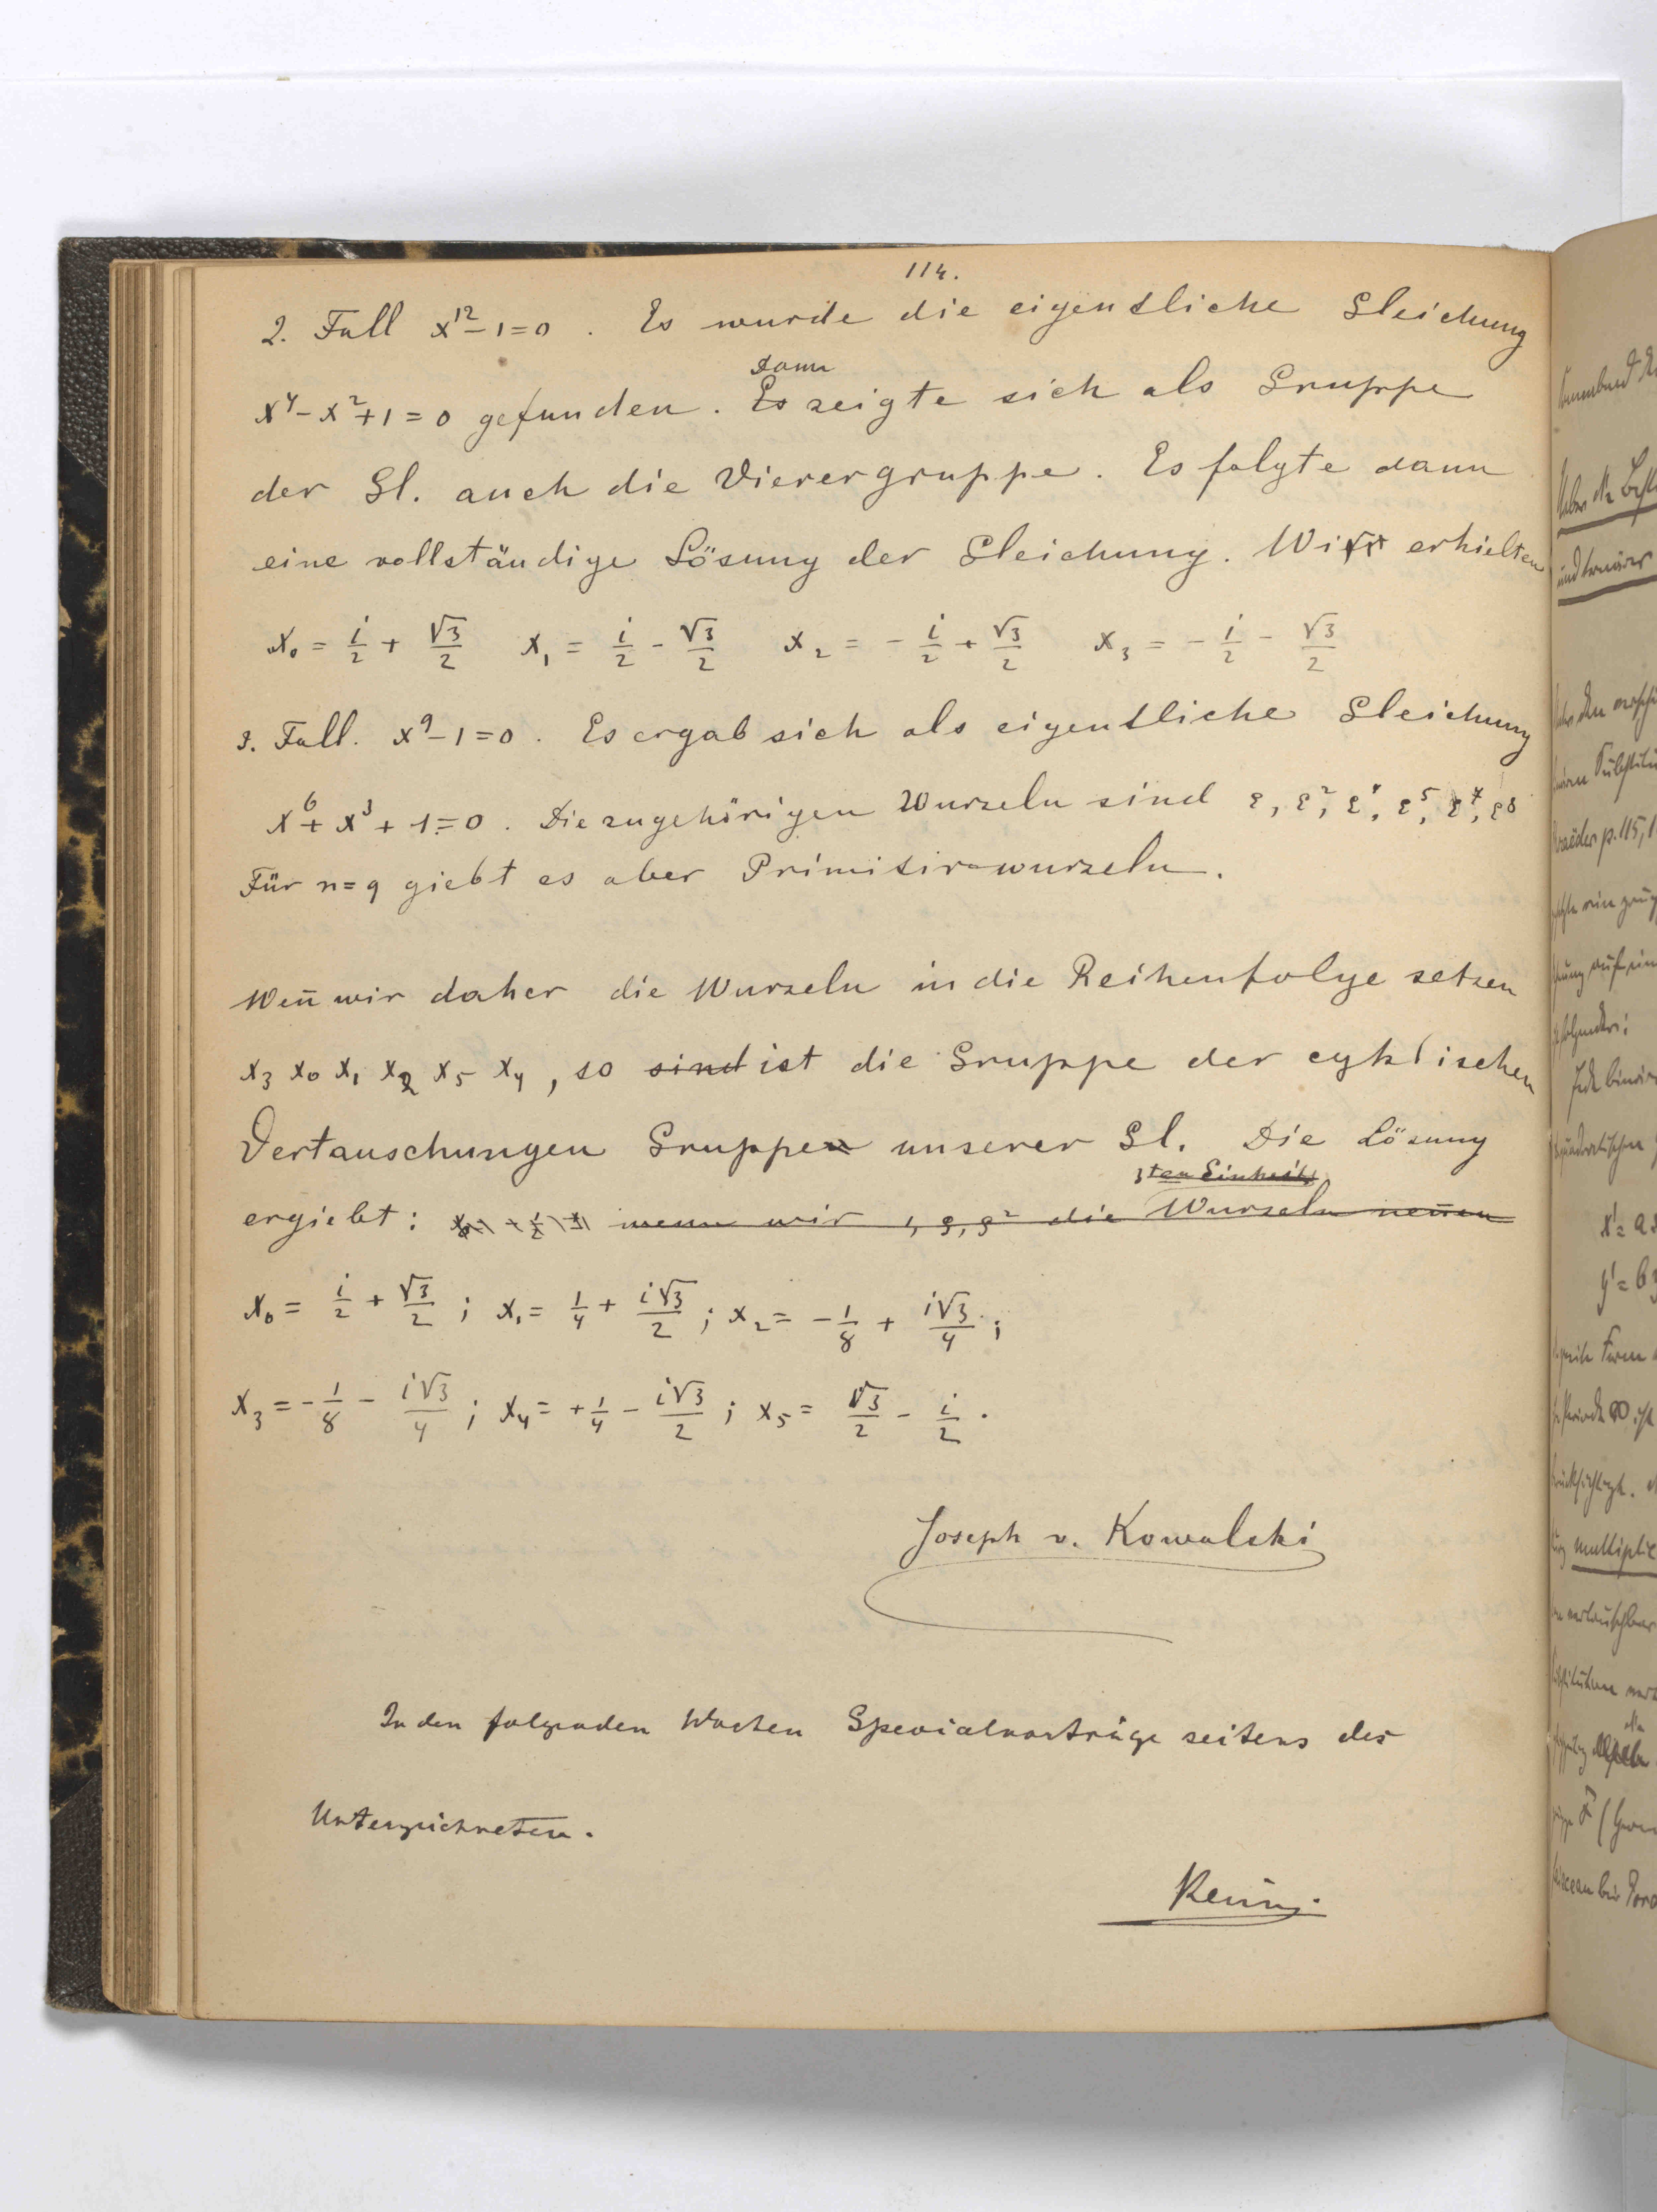 114.
2. Fall x¹²-1=0. Es wurde die eigentliche Gleichung
dann
x⁴-x²+1=0 gefunden. Es zeigte sich als Gruppe
der Gl. auch die Vierergruppe. Es folgte dann
eine vollständige Lösung der Gleichung. Wir erhielten
x₀ = i/2 + √3/2 x₁ = i/2 - √3/2 x₂ = - i/2 + √3/2 x₃ = - i/2 - √3/2
3. Fall. x⁹-1=0. Es ergab sich als eigentliche Gleichung
x⁶+x³+1=0. Die zugehörigen Wurzeln sind ε, ε², ε⁴, ε⁵, ε⁷, ε⁸
Für n=9 giebt es aber Primitivwurzeln.
Weñ wir daher die Wurzeln in die Reihenfolge setzen
x₃ x₀ x₁ x₂ x₅ x₄, so sind ist die Gruppe der cyklischen
Vertauschungen Gruppe unserer Gl. Die Lösung
3ten Einheits
ergiebt: wenn wir 1, ρ, ρ² die Wurzeln neñen
x₀ = i/2 + √3/2; x₁ = 1/4 + i√3/2; x₂ = - 1/8 + i√3/4;
x₃ = - 1/8 - i√3/4; x₄ = + 1/4 - i√3/2; x₅ = √3/2 - i/2.
Joseph v. Kowalski
In den folgenden Wochen Specialvorträge seitens des
Unterzeichneten.
und ternärer
p. 115,
folgender:
Jede binäre
quadratischen
x' = a
y' = b
Form
Periode ∞ ist
multiplic